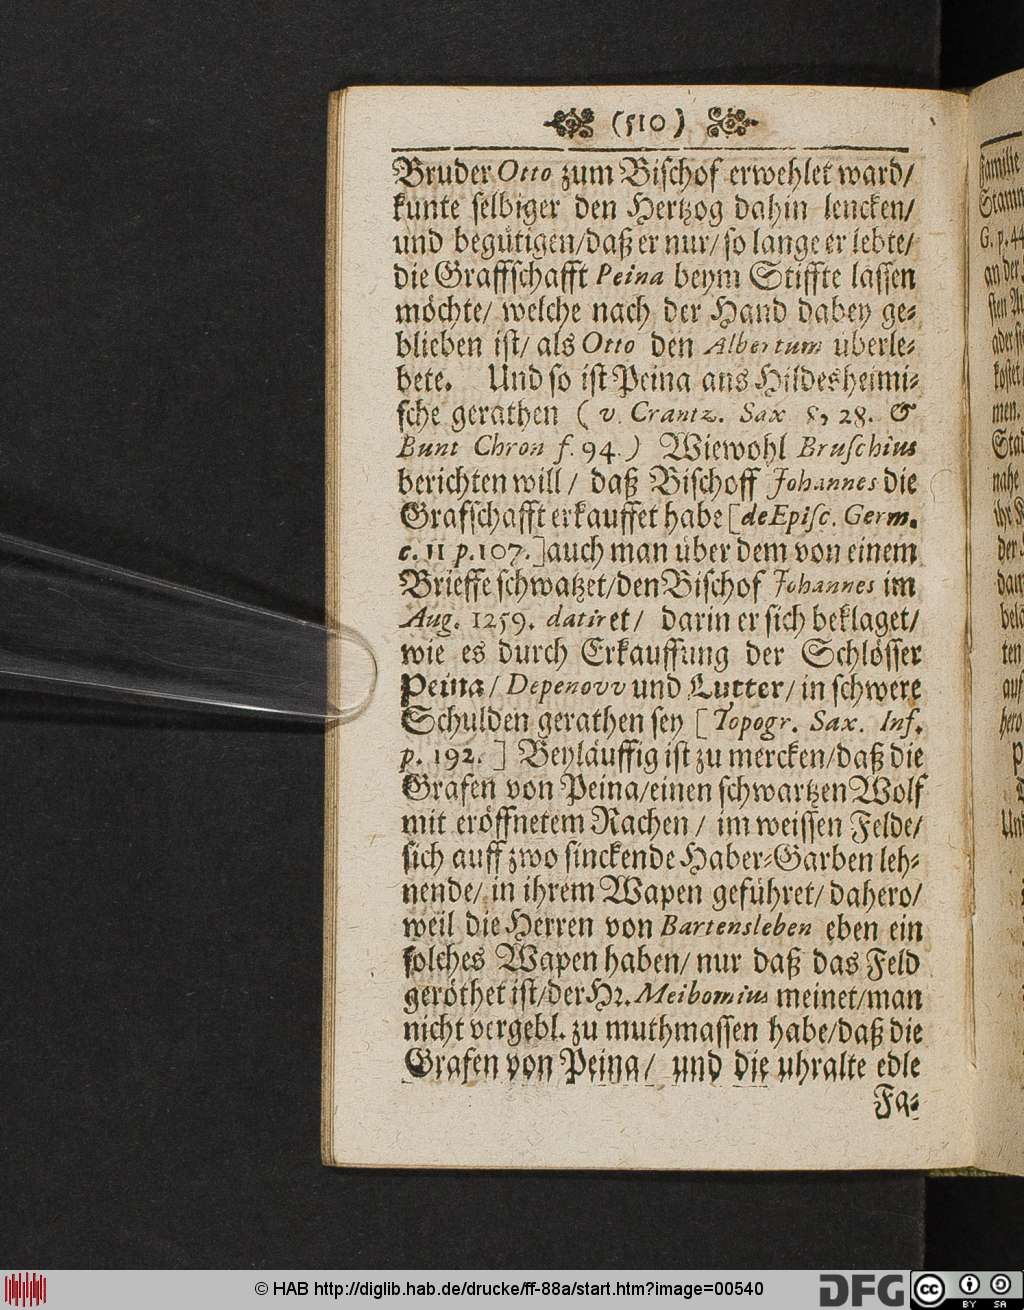 (510)
Bruder Otto zum Bischof erwehlet ward/
kunte selbiger den Hertzog dahin lencken/
und begütigen/daß er nur/so lange er lebte/
die Graffschafft Peina beym Stiffte lassen
möchte/ welche nach der Hand dabey ge-
blieben ist/ als Otto den Albertum uberle-
bete. Und so ist Peina ans Hildesheimi-
sche gerathen ( v. Crantz. Sax 8, 28. &
Bunt Chron f. 94.) Wiewohl Bruschius
berichten will/ daß Bischoff Johannes die
Grafschafft erkauffet habe [de Episc. Germ.
c. 11 p. 107.] auch man über dem von einem
Brieffe schwatzet/den Bischof Johannes im
Aug. 1259. datiret/ darin er sich beklaget/
wie es durch Erkauffung der Schlösser
Peina/ Depenovv und Lutter/ in schwere
Schulden gerathen sey [Topogr. Sax. Inf.
p. 192.] Beyläuffig ist zu mercken/daß die
Grafen von Peina/einen schwartzen Wolf
mit eröffnetem Rachen/ im weissen Felde/
sich auff zwo sinckende Haber-Garben leh-
nende/ in ihrem Wapen geführet/ dahero/
weil die Herren von Bartensleben eben ein
solches Wapen haben/ nur daß das Feld
geröthet ist/der Hr. Meibomius meinet/man
nicht vergebl. zu muthmassen habe/daß die
Grafen von Peina/ und die uhralte edle
Fa-
Familie
© HAB http://diglib.hab.de/drucke/ff-88a/start.htm?image=00540
DFG
cc BY SA